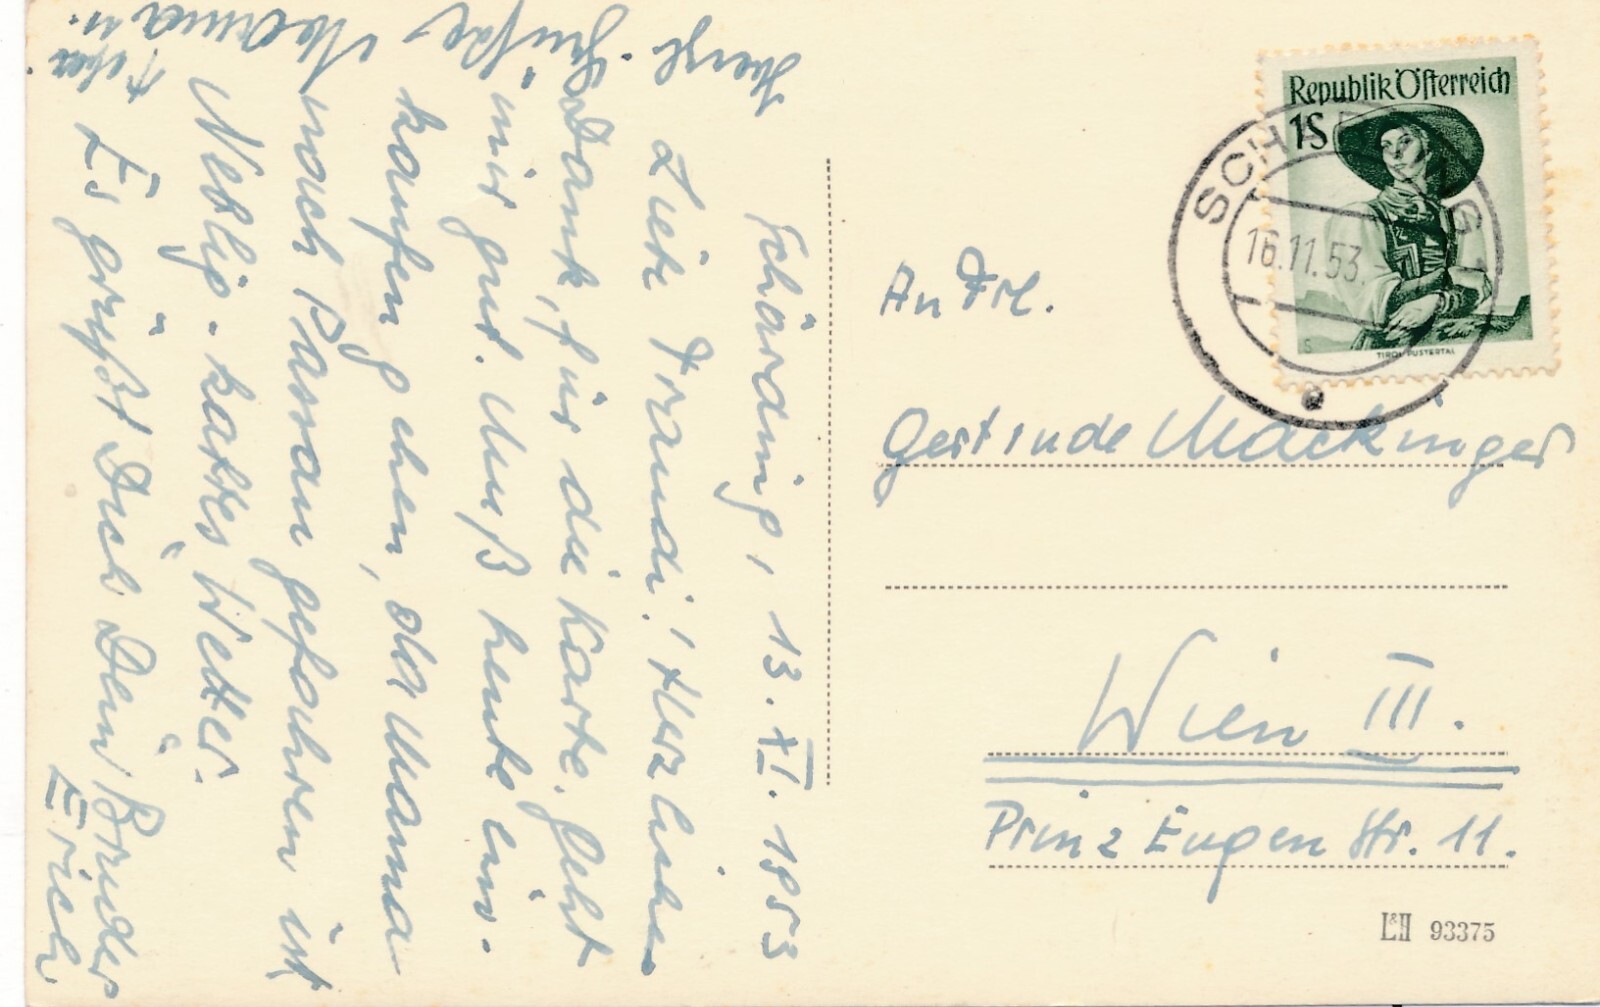 Schärding, 13. XI. 1953
Liebe Traudi! Herzlichen
Dank, für die Karte. Geht
mir gut. Muß heute ein-
kaufen gehen, da Mama
nach Passau gefahren ist
Neblig - kaltes Wetter.
Es grüßt Dich Dein Bruder
Erich
Herzl. Grüße
Republik Österreich
1S
TIROL PUSTERTAL
SCHÄRDING 1
16.11.53.
An Frl.
Gertrude Mackinger
Wien III.
Prinz Eugen Str. 11.
L&H 93375